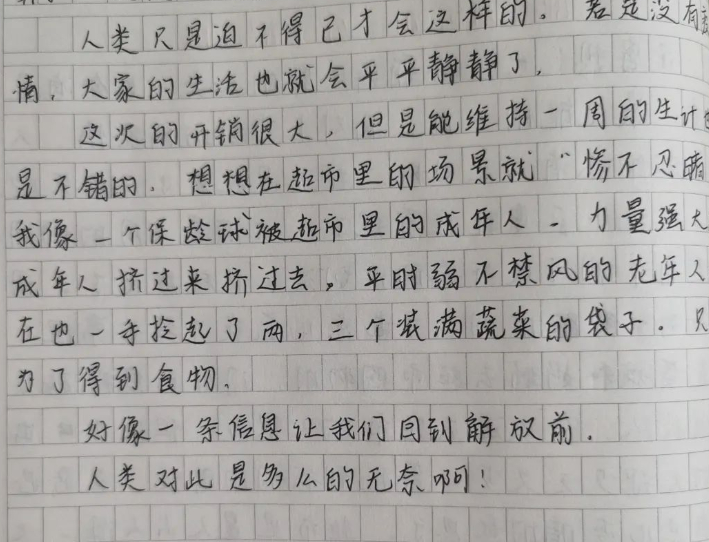 人类只是迫不得已才会这样的。若是没有
情，大家的生活也就会平平静静了，
这次的开销很大，但是能维持一周的生计也
是不错的．想想在超市里的场景就“惨不忍睹
我像一个保龄球被超市里的成年人．力量强大
成年人挤过来挤过去。平时弱不禁风的老年人
在也一手捡起了两，三个装满蔬菜的袋子。只
为了得到食物．
好像一条信息让我们回到解放前．
人类对此是多么的无奈啊！